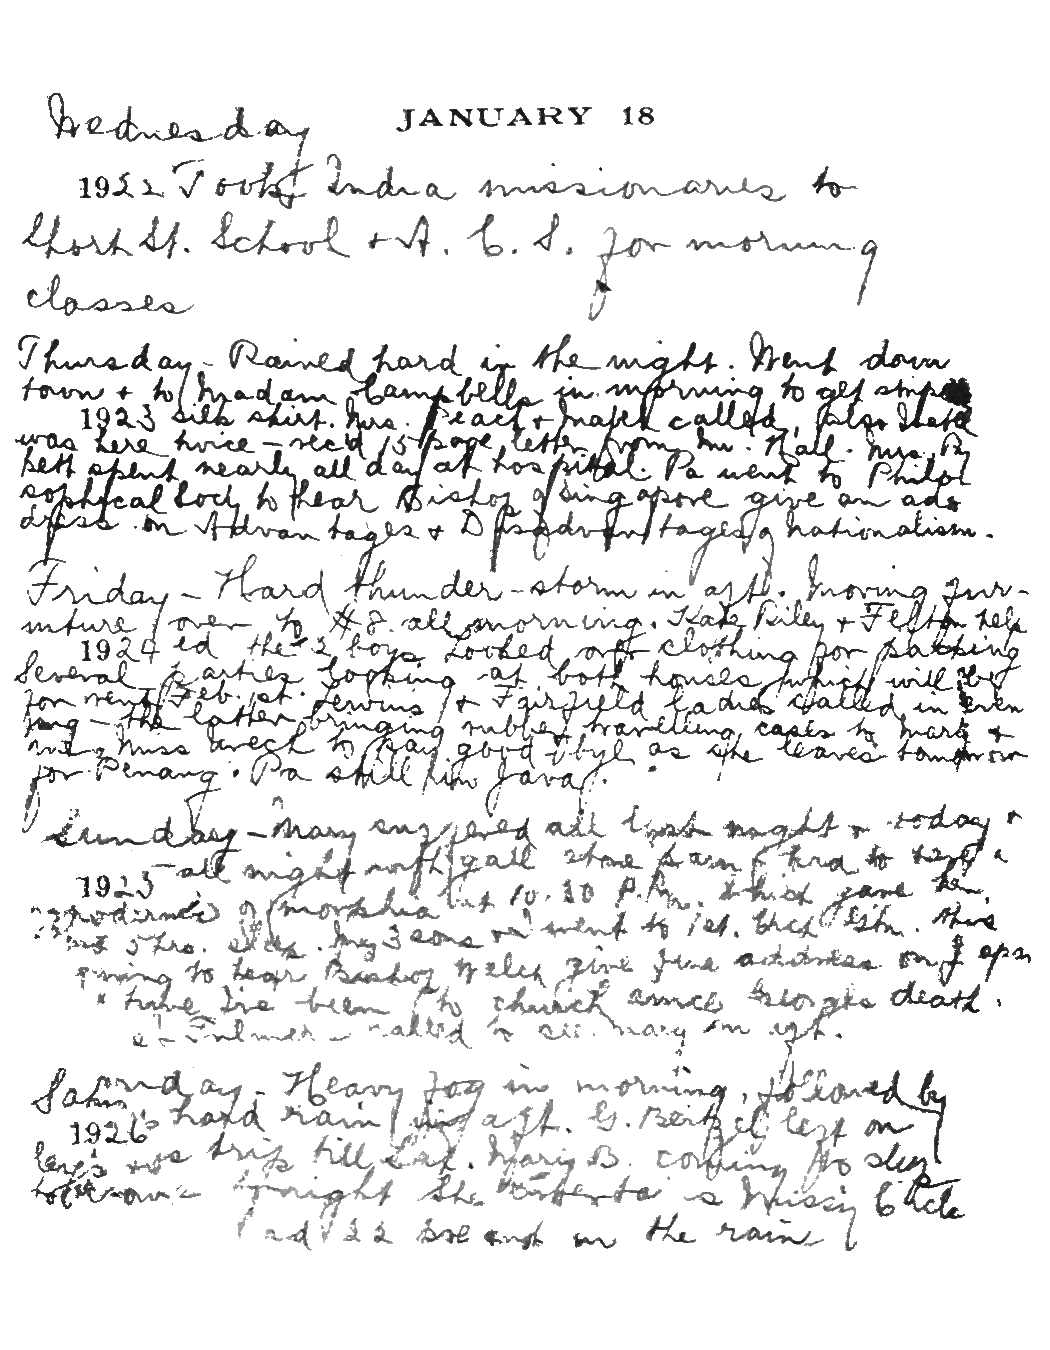 Wednesday JANUARY 18
1922 Took India missionaries to
Short St. School + A. C. S. for morning
classes
Thursday - Rained hard in the night. Went down
town + to Madam Campbells in morning to get
1923 silk shirt. Mrs. Peach + Mabel called, also
was here twice - rec'd 15 page letter from Mr. Hall. Mrs. B
bett spent nearly all day at hospital. Pa went to Philo
sophical Socty to hear Bishop of Singapore give an ad-
dress on Advantages + Disadvantages of nationalism.
Friday - Hard thunder-storm in aft. Moving fur-
niture over to #8 all morning. Kate Riley + Felton help
1924 ed the boys. Looked over clothing for packing
Several parties looking at both houses which will be
for rent Feb. 1st. + Fairfield ladies called in even
ing - the latter bringing rubber travelling cases to Mary +
me, Miss to say good-bye as she leaves tomorrow
for Penang. Pa still in Java.
Sunday - Mary suffered all last night + today +
1925 - all night with gall stone pain + had to take a
of morphia at 10.30 P.M. which gave her
5 hrs. sleep. My 3 sons + I went to 1st. Chch this
to hear Bishop Welch give fine address on Japan
time I've been to church since George's death.
called to see Mary in aft.
Monday - Heavy fog in morning, followed by
1926 hard rain in aft. G. left on
trip till Sat. Mary B. coming to sleep
tonight She is Missy
in the rain